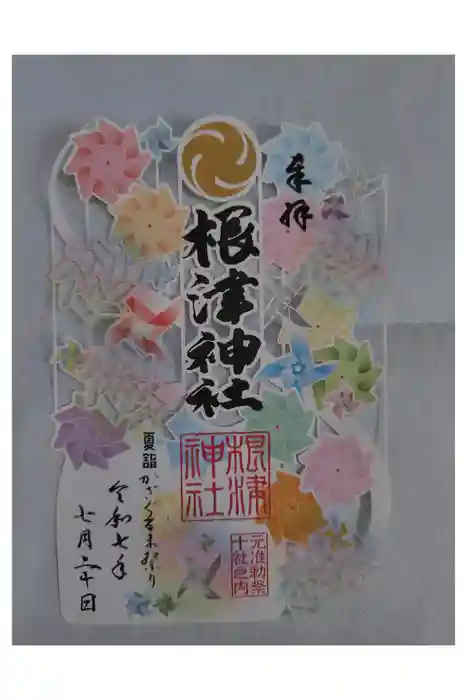 奉拝
根津神社
根津
神社
元准勅祭
十社之内
夏詣 かざぐるままつり
令和七年
七月二十日